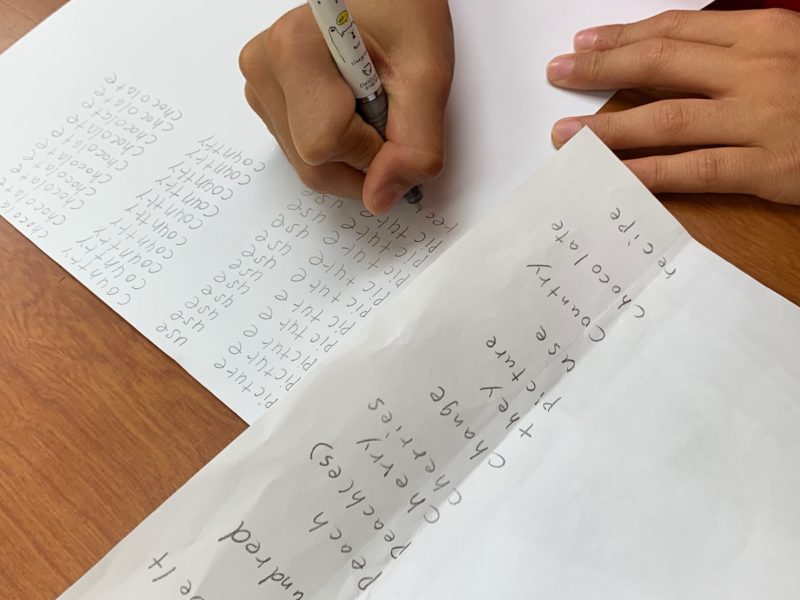 elt
undred
Peach
Peach(es)
Cherry
Cherries
Change
they
picture
use
Country
Chocolate
recipe
picture use country chocolate
picture use country chocolate
picture use country chocolate
picture use country chocolate
picture use country chocolate
picture use country chocolate
picture use country chocolate
picture use
rec